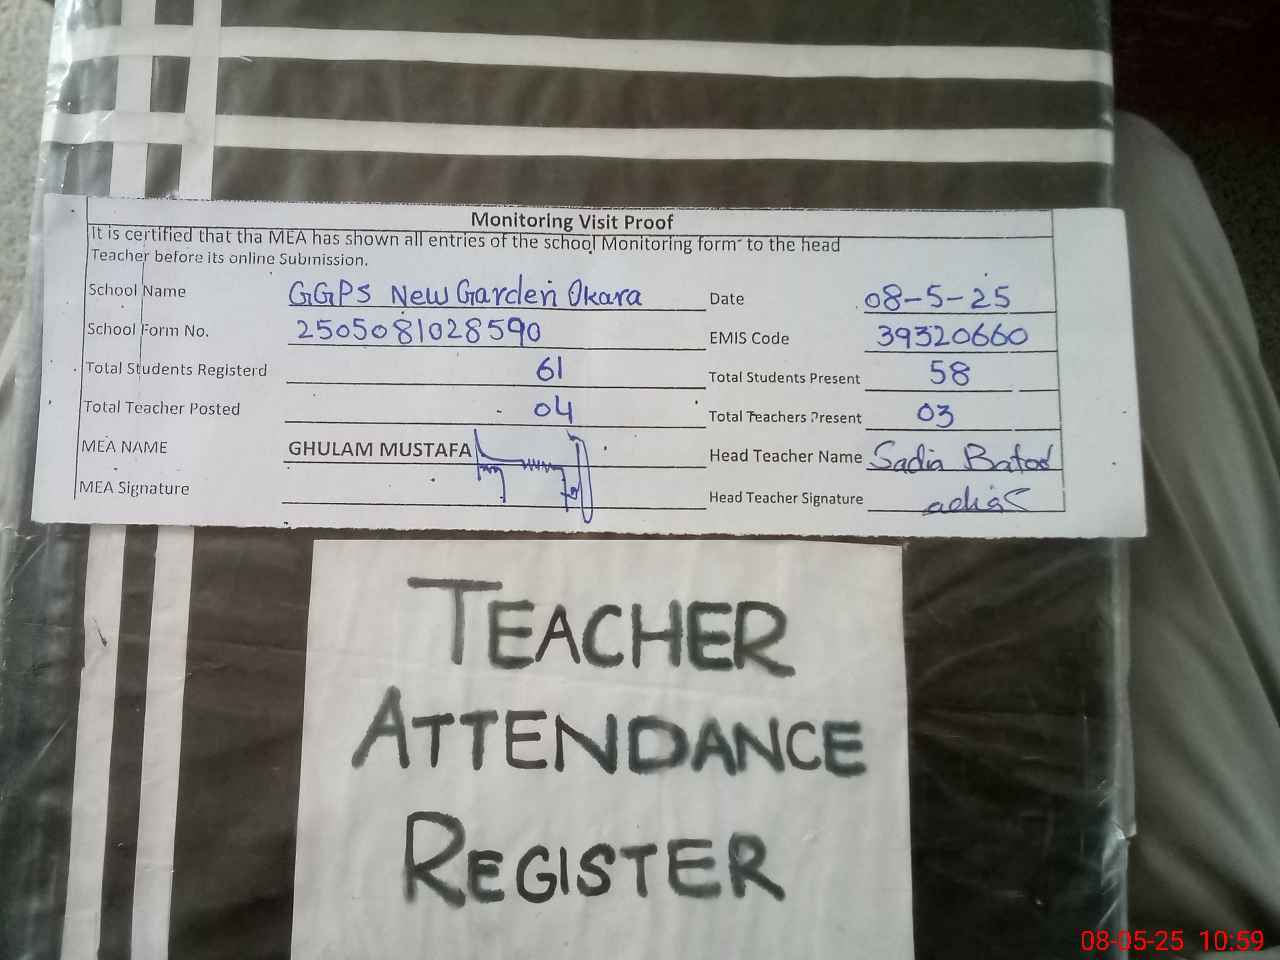 Monitoring Visit Proof
It is certified that tha MEA has shown all entries of the school Monitoring form to the head
Teacher before its online Submission.
School Name GGPS New Garden Okara Date 08-5-25
School Form No. 2505081028590 EMIS Code 39320660
Total Students Registerd 61 Total Students Present 58
Total Teacher Posted 04 Total Teachers Present 03
MEA NAME GHULAM MUSTAFA Head Teacher Name Sadia Batool
MEA Signature Head Teacher Signature
TEACHER
ATTENDANCE
REGISTER
08-05-25 10:59